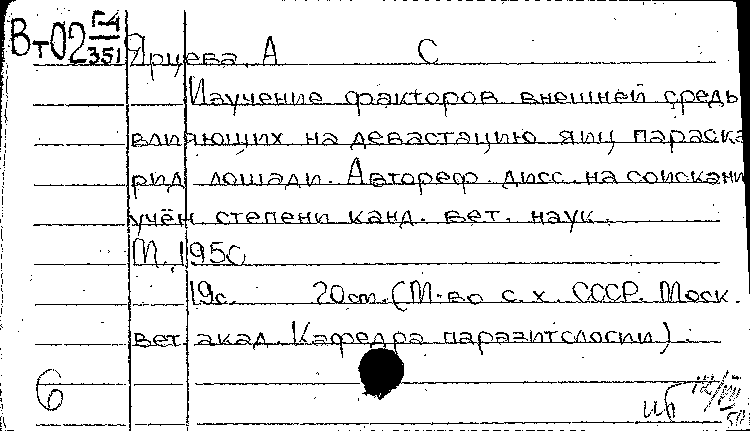 Вт02 Г-4
351
Ярцева, А С
Изучение факторов внешней среды
влияющих на девастацию яиц параска
рид лошади. Автореф. дисс. на соискани
учён. степени канд. вет. наук.
М. 1950
19с. 20см. (М-во с. х. СССР. Моск.
вет. акад. Кафедра паразитологии).
6
иб 12/VII
50